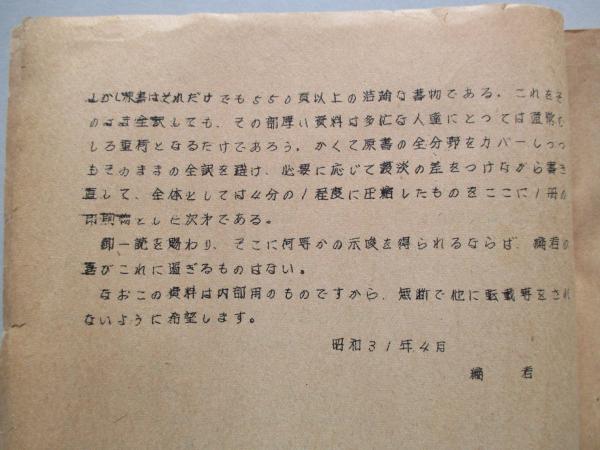 しかし原書はそれだけでも550頁以上の浩瀚な書物である。これをそ
のまま全訳しても、その部厚い資料は多忙な人達にとっては通常む
しろ重荷となるだけであろう。かくて原書の全分野をカバーしつつ
もそのままの全訳を避け、必要に応じて濃淡の差をつけながら書き
直して、全体としては4分の1程度に圧縮したものをここに1冊の
印刷物とした次第である。
御一読を賜わり、そこに何等かの示唆を得られるならば、編者の
喜びこれに過ぎるものはない。
なおこの資料は内部用のものですから、無断で他に転載等をされ
ないように希望します。
昭和31年4月
編者